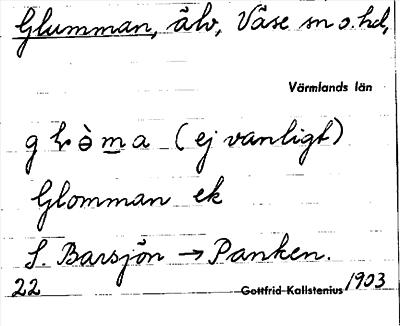 Glumman, älv, Väse sn o. hd,
Värmlands län
(ej vanligt)
Glomman ek
S. Barsjön → Panken.
22 Gottfrid Kallstenius 1903